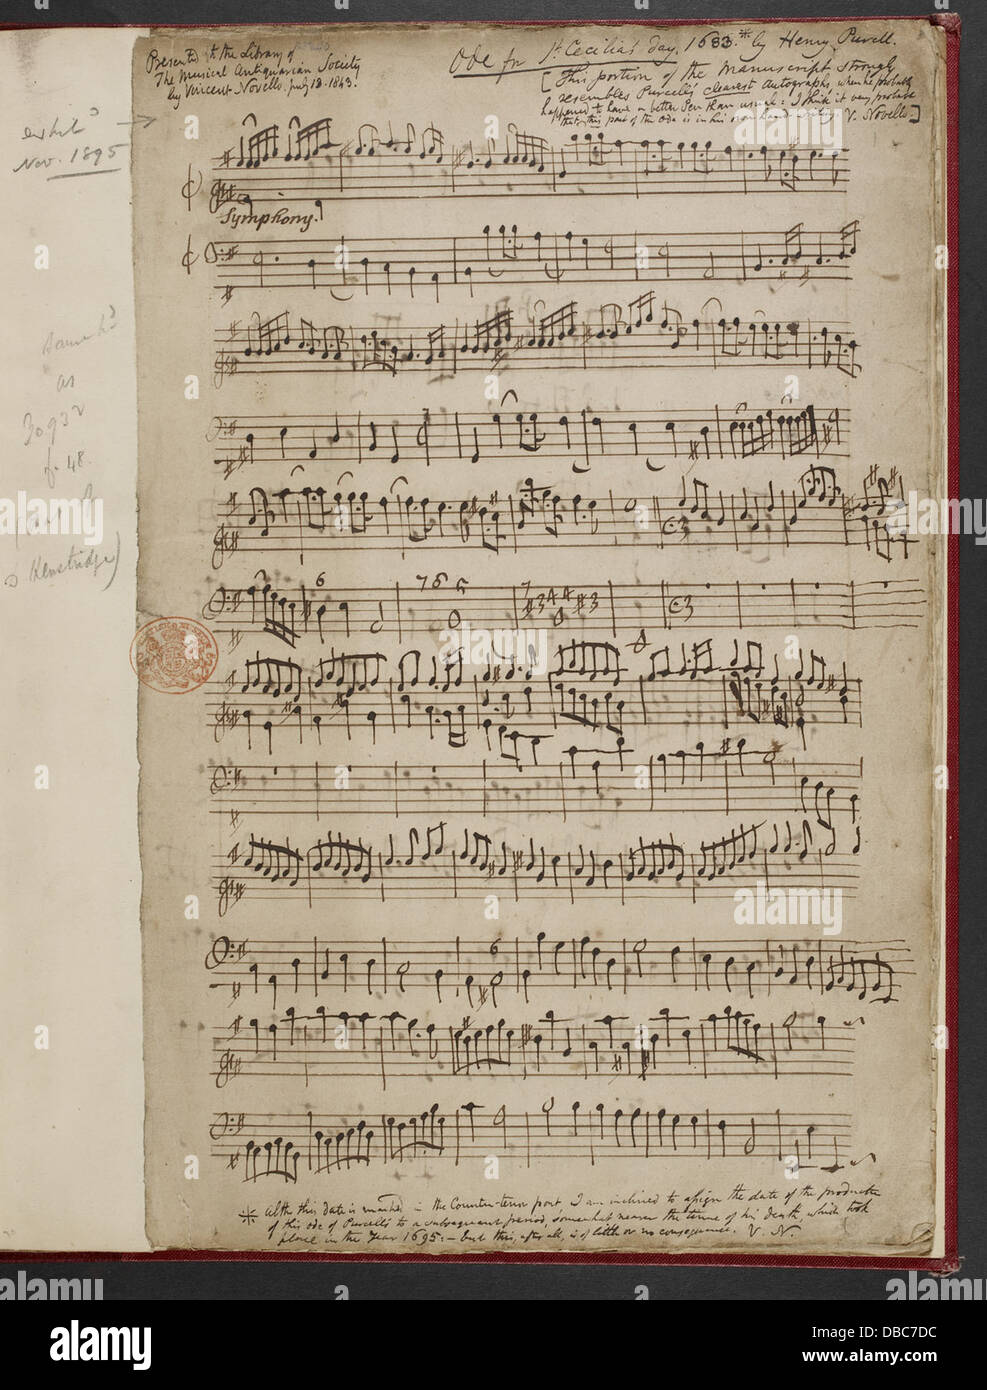 Presented to the Library of
The Musical Antiquarian Society
by Vincent Novello, July 18. 1843.
Ode for St Cecilia's day, 1683.* by Henry Purcell.
[This portion of the manuscript strongly
resembles Purcell's clearest Autographs, when he probably
happened to have a better Pen than usual: I think it very probable
that this part of the Ode is in his own hand-writing. V. Novello.]
Nov. 1895
Symphony.
as
30932
f. 48.
Kenstridge)
6
7 6 5
7
#3 4 4 #3
6
* Altho this Date is marked in the Counter-tenor part, I am inclined to assign the date of the production
of this ode of Purcell's to a subsequent period, somewhat nearer the time of his death, which took
place in the Year 1695:– but this, after all, is of little or no consequence. V. N.
alamy
a
alamy stock photo
DBC7DC
www.alamy.com